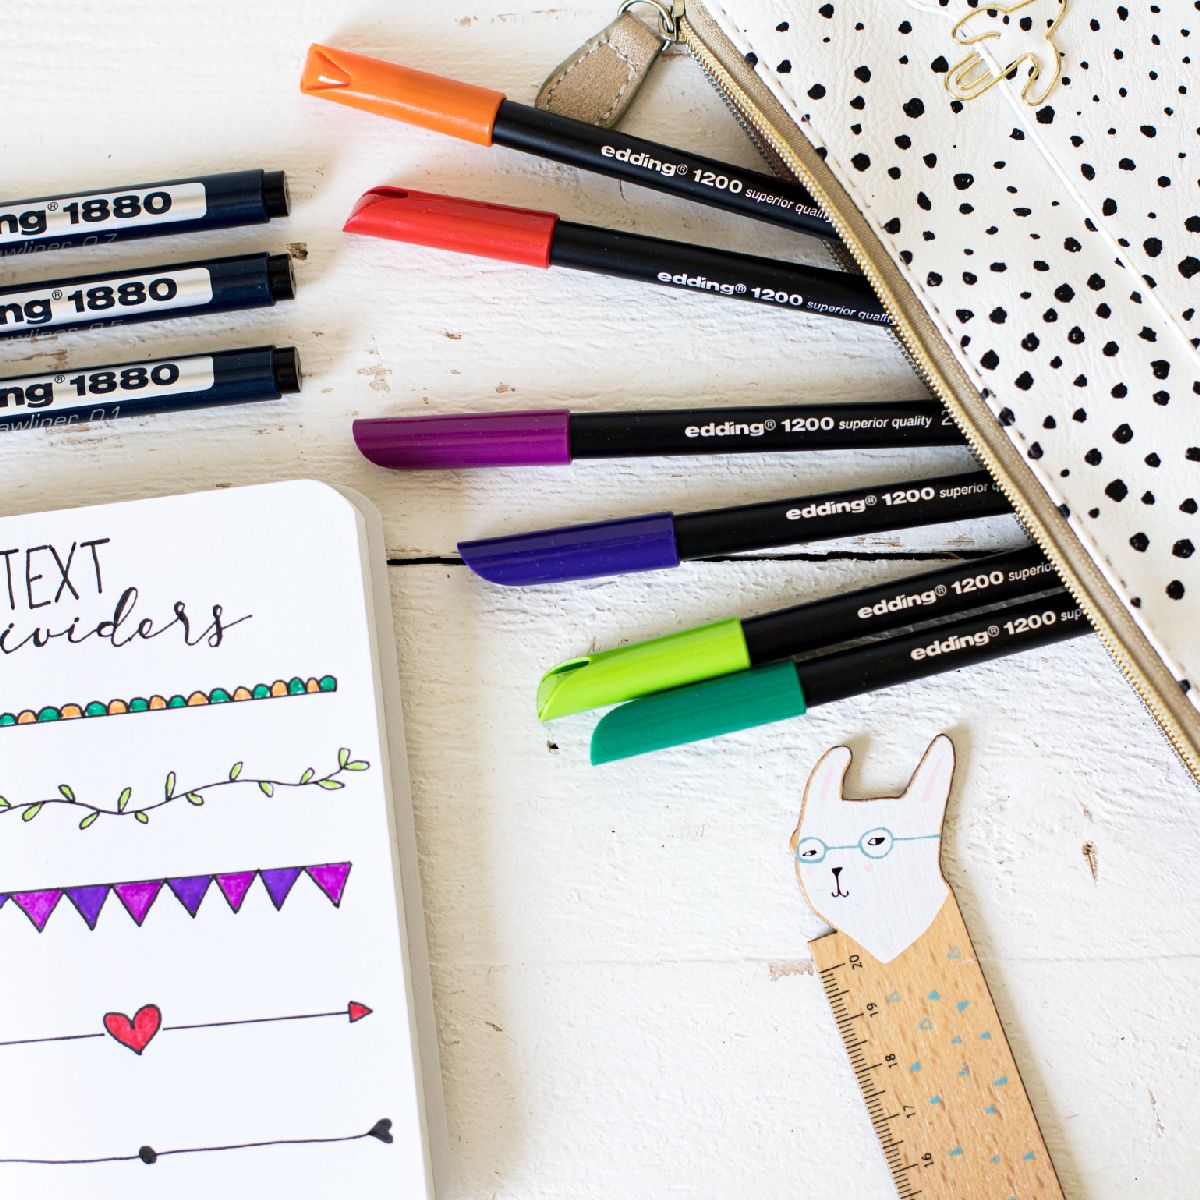 edding® 1200 superior quality
edding® 1200 superior quality
ng® 1880
awliner 0.7
ng® 1880
awliner 0.5
ng® 1880
awliner 0.1
edding® 1200 superior quality 2
edding® 1200 superior q
edding® 1200 superior
edding® 1200 sup
TEXT
ividers
20
19
18
17
16